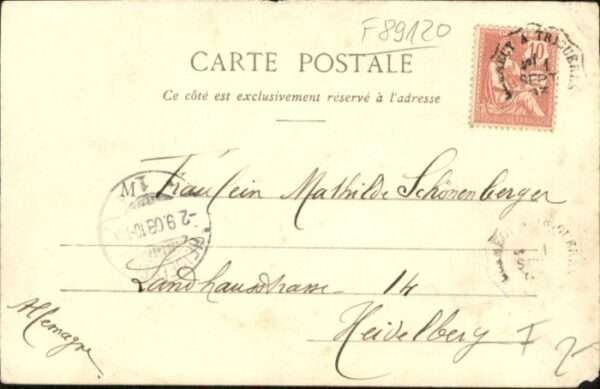 F89120
CARTE POSTALE
Ce côté est exclusivement réservé à l'adresse
10
SEPT
Fräulein Mathilde Schönenberger
-2.9.03.10-
Landhausstrasse 14
Heidelberg I
Allemagne